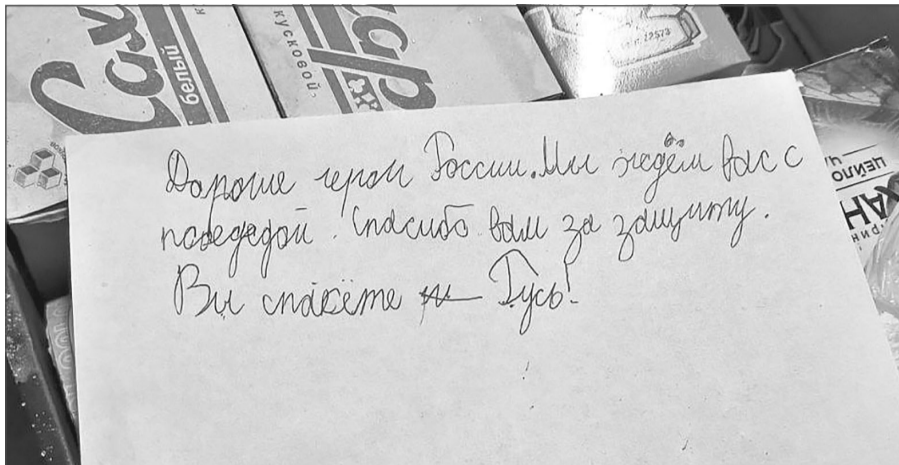 Сах
белый
кусковой
Дорогие герои России. Мы ждём вас с
победой. Спасибо вам за защиту.
Вы спасёте Русь!